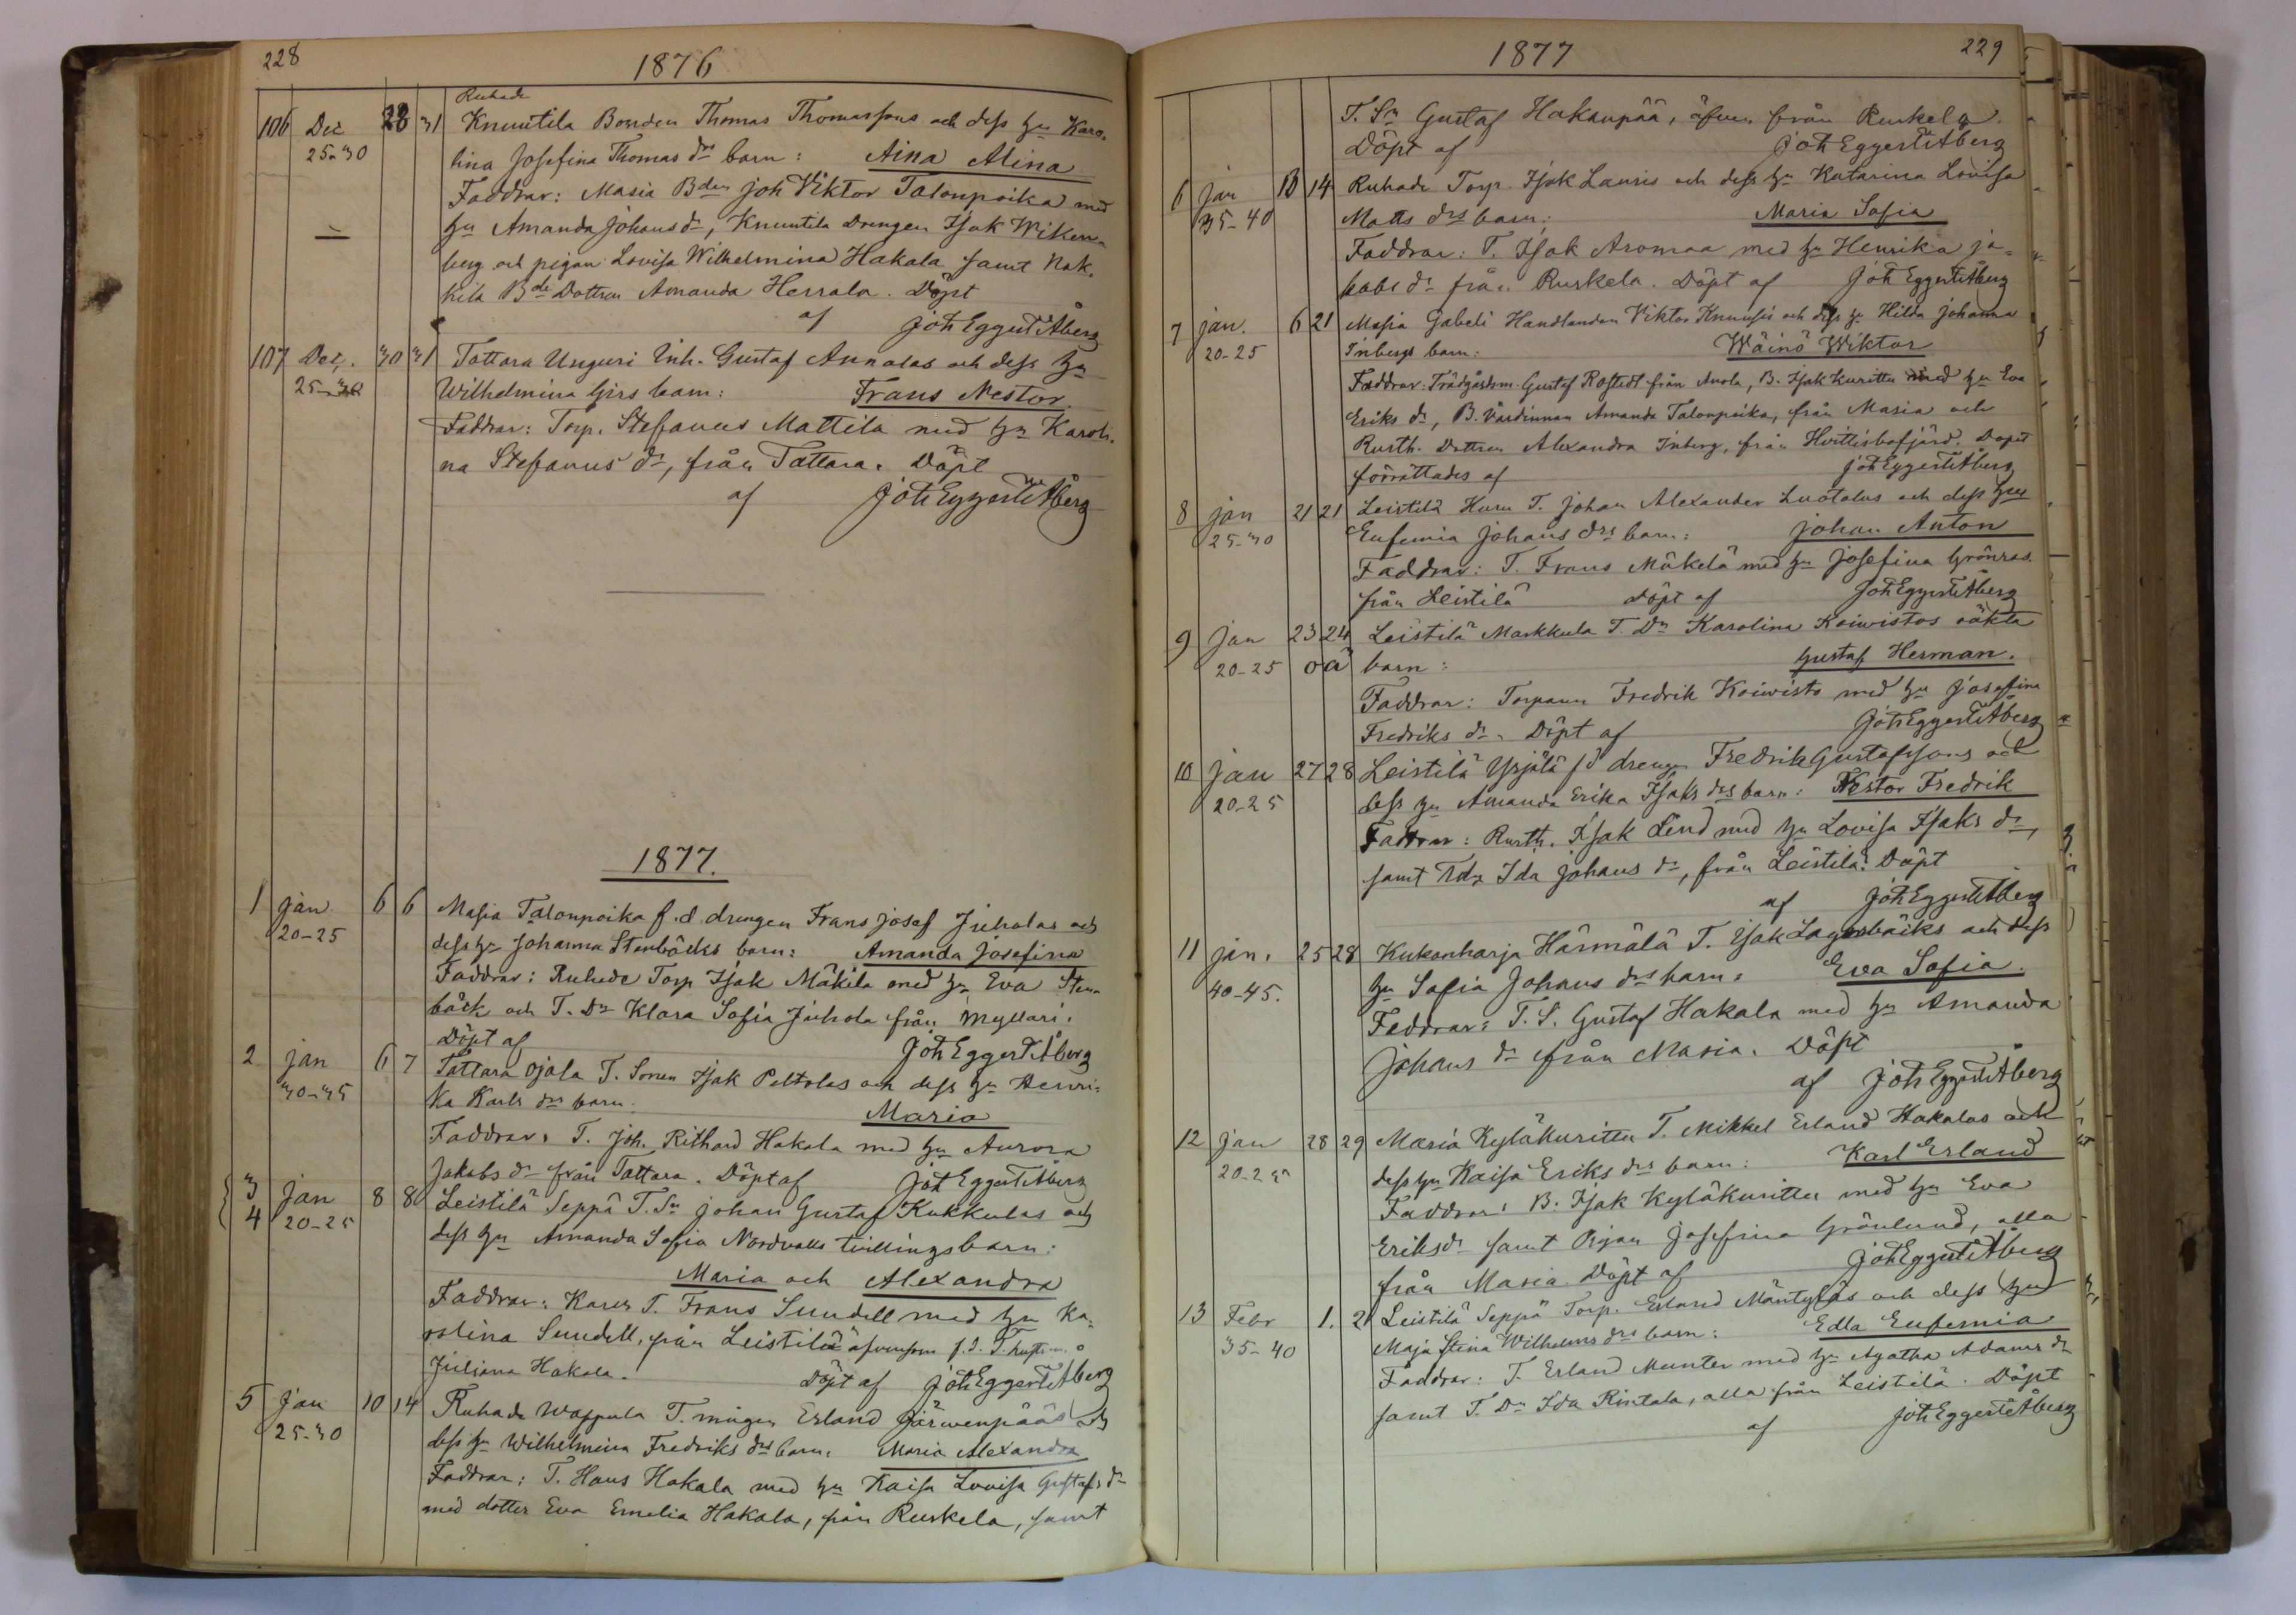 228
1876
Ruhade
106 Dec 28 31 Knuutila Bonden Thomas Thomassons och dess hu Karo-
25-30 lina Josefina Thomas drs barn: Aina Alina
Faddrar: Masia Bden Joh Viktor Talonpoika med
hu Amanda Johans dr, Knuutila Drengen Isak Wiken-
berg och pigan Lovisa Wilhelmina Hakala samt Nak-
kila Bde Dottren Amanda Herrala. Döpt
af Joh Eggert Åberg
107 Dec. 30 31 Tattara Unguri Inh. Gustaf Annalas och dess hu
25-30 Wilhelmina Girs barn: Frans Nestor.
Faddrar: Torp. Stefanus Mattila med hu Karoli-
na Stefanus dr, från Tattara. Döpt
af Joh Eggert Åberg
1877.
1 Jan 6 6 Masia Talonpoika f.d. drengen Frans Josef Juholas och
20-25 dess hu Johanna Stenbäcks barn: Amanda Josefina
Faddrar: Ruhade Torp Isak Mäkilä med hu Eva Sten-
bäck och T. Dr Klara Sofia Juhola från Myllari.
Döpt af Joh Eggert Åberg
2 Jan 6 7 Tattara Ojala T. Sonen Isak Peltolas och dess hu Henri-
30-35 ka Karls drs barn: Maria
Faddrar: T. Joh. Rithard Hakala med hu Aurora
Jakobs dr från Tattara. Döpt af Joh Eggert Åberg
3 Jan 8 8 Leistilä Seppä T. Sn Johan Gustaf Kukkulas och
4 20-25 dess hu Amanda Sofia Nordvalls tvillingsbarn:
Maria och Alexandra
Faddrar: Karer T. Frans Sundell med hu Ka-
rolina Sundell, från Leistilä äfvensom f.d. T.
Juliana Hakala. Döpt af Joh Eggert Åberg
5 Jan 10 14 Ruhade Wappula T. mågen Erland Järwenpääs och
25-30 dess hu Wilhelmina Fredriks drs barn: Maria Alexandra
Faddrar: T. Hans Hakala med hu Kaisa Lovisa Gustafs dr
med dotter Eva Emelia Hakala, från Ruskela, samt
1877
229
T. Sn Gustaf Hakanpää, äfven från Ruskela
Döpt af Joh Eggert Åberg
6 Jan 13 14 Ruhade Torp. Isak Lauris och dess hu Katarina Lovisa
35-40 Matts drs barn: Maria Sofia
Faddrar: T. Isak Aromaa med hu Henrika Ja-
kobs dr från Ruskela. Döpt af Joh Eggert Åberg
7 Jan. 6 21 Masia Gabeli Handlanden Viktor Knuussi och dess hu Hilda Johanna
20-25 Inbergs barn: Wäinö Wiktor
Faddrar: Trädgårdsm. Gustaf Rostedt från Anola, B. Isak Kuritta med hu Eva
Eriks dr, B. Värdinnan Amanda Talonpoika, från Masia och
Rusth. Dottren Alexandra Inberg, från Hvittisbofjärd. Dopet
förrättades af Joh Eggert Åberg
8 Jan 21 21 Leistilä Huru T. Johan Alexander Luotolas och dess hu
25-30 Eufemia Johans drs barn: Johan Anton
Faddrar: T. Frans Mäkelä med hu Josefina Grönroos
från Leistilä Döpt af Joh Eggert Åberg
9 Jan 23 24 Leistilä Markkula T. Dn Karolina Koiwistos oäkta
20-25 oä barn: Gustaf Herman.
Faddrar: Torparn Fredrik Koiwisto med hu Josefina
Fredriks dr. Döpt af Joh Eggert Åberg
10 Jan 27 28 Leistilä Yrjölä fd drengen Fredrik Gustafssons och
20-25 dess hu Amanda Erika Isaks drs barn: Nestor Fredrik
Faddrar: Rusth. Isak Lind med hu Lovisa Isaks dr,
samt Ida Johans dr, från Leistilä. Döpt
af Joh Eggert Åberg
11 Jan. 25 28 Kukonharja Härmälä T. Isak Lagerbäcks och dess
40-45. hu Sofia Johans drs barn: Eva Sofia.
Faddrar: T. S. Gustaf Hakala med hu Amanda
Johans dr från Masia. Döpt
af Joh Eggert Åberg
12 Jan 28 29 Masia Kyläkuritta T. Mikkel Erland Hakalas och
20-25 dess hu Kaisa Eriks drs barn: Karl Erland
Faddrar: B. Isak Kyläkuritta med hu Eva
Eriksdr samt Pigan Josefina Grönlund, alla
från Masia. Döpt af Joh Eggert Åberg
13 Febr 1. 2 Leistilä Seppä Torp. Erland Mäntyläs och dess hu
35-40 Maja Stina Wilhelms drs barn: Edla Eufemia
Faddrar: T. Erland Munter med hu Agatha Adams dr
samt T. Dr Ida Rintala, alla från Leistilä. Döpt
af Joh Eggert Åberg